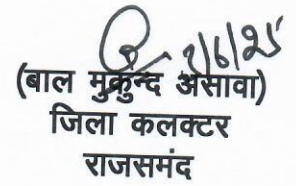 2/6/25
(बाल मुकुन्द असावा)
जिला कलक्टर
राजसमंद